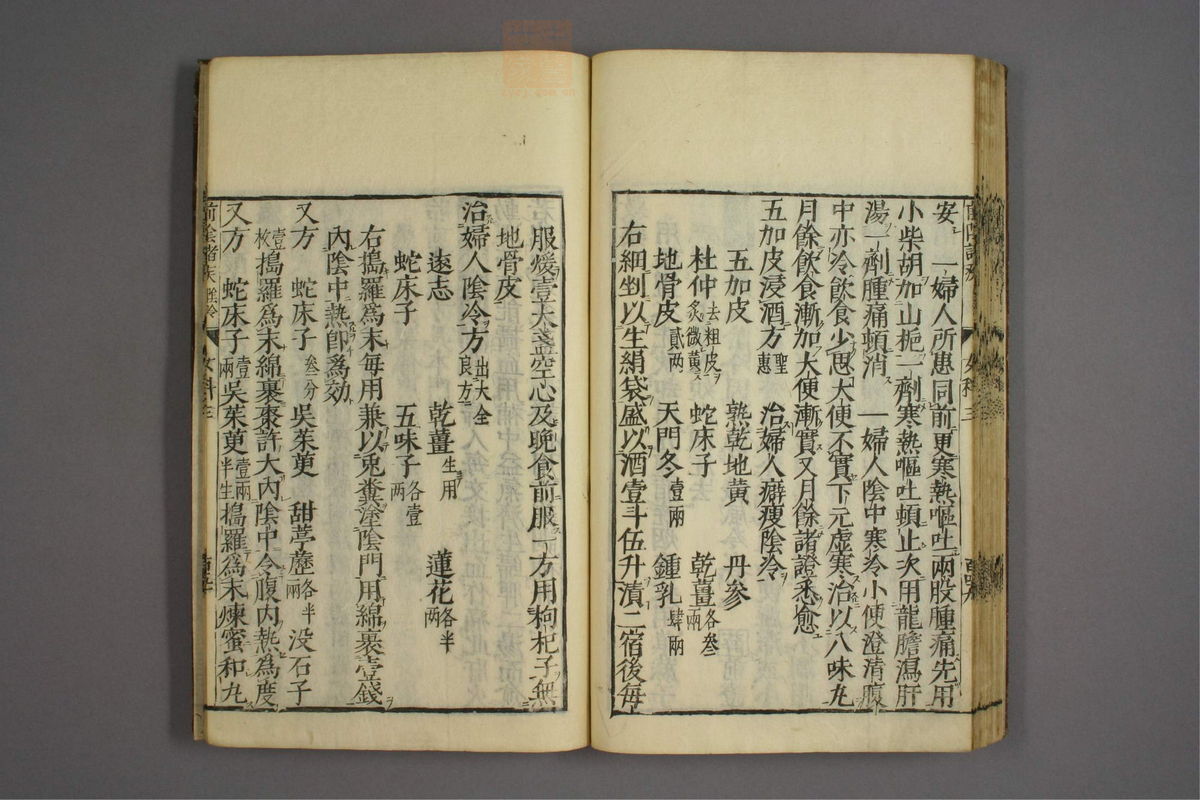 安 一婦人所患同前更寒熱嘔吐兩股腫痛先用
小柴胡加山梔一劑寒熱嘔吐頓止次用龍膽瀉肝
湯一劑腫痛頓消 一婦人陰中寒冷小便澄清腹
中亦冷飲食少思大便不實下元虛寒治以八味丸
月餘飲食漸加大便漸實又月餘諸證悉愈
五加皮浸酒方聖惠 治婦人癖瘦陰冷
五加皮 熟乾地黃 丹參
杜仲去粗皮炙微黃 蛇床子 乾薑各叄兩
地骨皮貳兩 天門冬壹兩 鍾乳肆兩
右細剉以生絹袋盛以酒壹斗伍升漬二宿後每
服煖壹大盞空心及晚食前服一方用枸杞子無
地骨皮
治婦人陰冷方出大全良方
遠志 乾薑生用 蓮花各半兩
蛇床子 五味子各壹兩
右搗羅為末每用兼以兎糞塗陰門用綿裹壹錢
內陰中熱卽為効
又方 蛇床子叄分 吳茱萸 甜葶藶各半兩 没石子
壹枚 搗羅為末綿裹棗許大內陰中令腹內熱為度
又方 蛇床子壹兩 吳茱萸壹兩半生 搗羅為末煉蜜和丸
前陰諸疾 陰冷 女科三